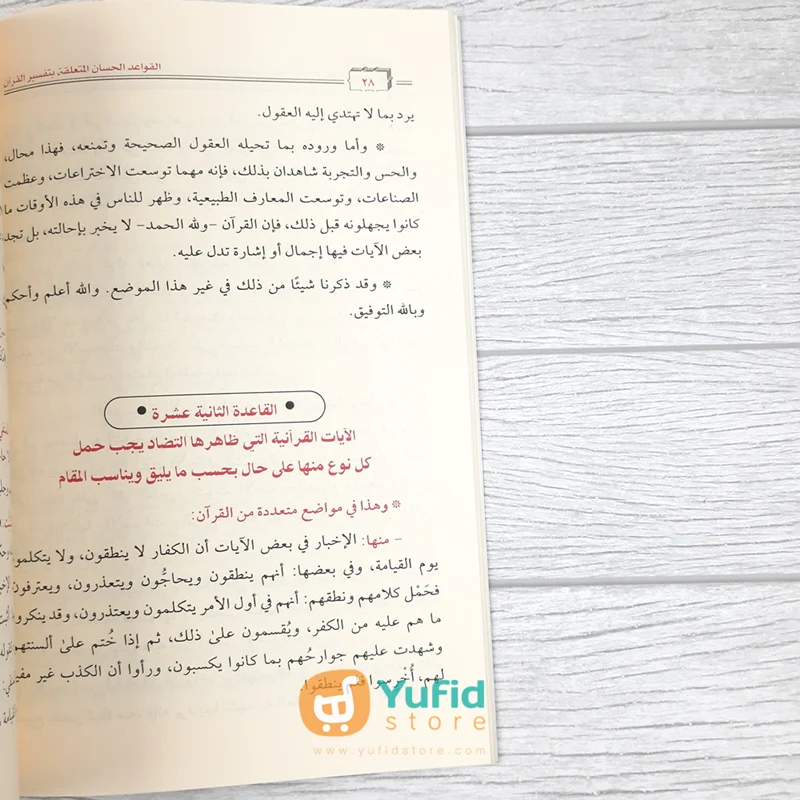 القواعد الحسان المتعلقة بتفسير القرآن
٢٨
يرد بما لا تهتدي إليه العقول.
❊ وأما وروده بما تحيله العقول الصحيحة وتمنعه، فهذا محال،
والحس والتجربة شاهدان بذلك، فإنه مهما توسعت الاختراعات، وعظمت
الصناعات، وتوسعت المعارف الطبيعية، وظهر للناس في هذه الأوقات ما
كانوا يجهلونه قبل ذلك، فإن القرآن -ولله الحمد- لا يخبر بإحالته، بل تجد
بعض الآيات فيها إجمال أو إشارة تدل عليه.
❊ وقد ذكرنا شيئًا من ذلك في غير هذا الموضع. والله أعلم وأحكم،
وبالله التوفيق.
• القاعدة الثانية عشرة •
الآيات القرآنية التي ظاهرها التضاد يجب حمل
كل نوع منها على حال بحسب ما يليق ويناسب المقام
❊ وهذا في مواضع متعددة من القرآن:
– منها: الإخبار في بعض الآيات أن الكفار لا ينطقون، ولا يتكلمون
يوم القيامة، وفي بعضها: أنهم ينطقون ويحاجُّون ويتعذرون، ويعترفون
فحَمْل كلامهم ونطقهم: أنهم في أول الأمر يتكلمون ويعتذرون، وقد ينكرون
ما هم عليه من الكفر، ويُقسمون علىٰ ذلك، ثم إذا خُتم علىٰ ألسنتهم
وشهدت عليهم جوارحُهم بما كانوا يكسبون، ورأوا أن الكذب غير مفيد
لهم، أُخْرسوا فلم ينطقوا.
Yufid
store
www.yufidstore.com